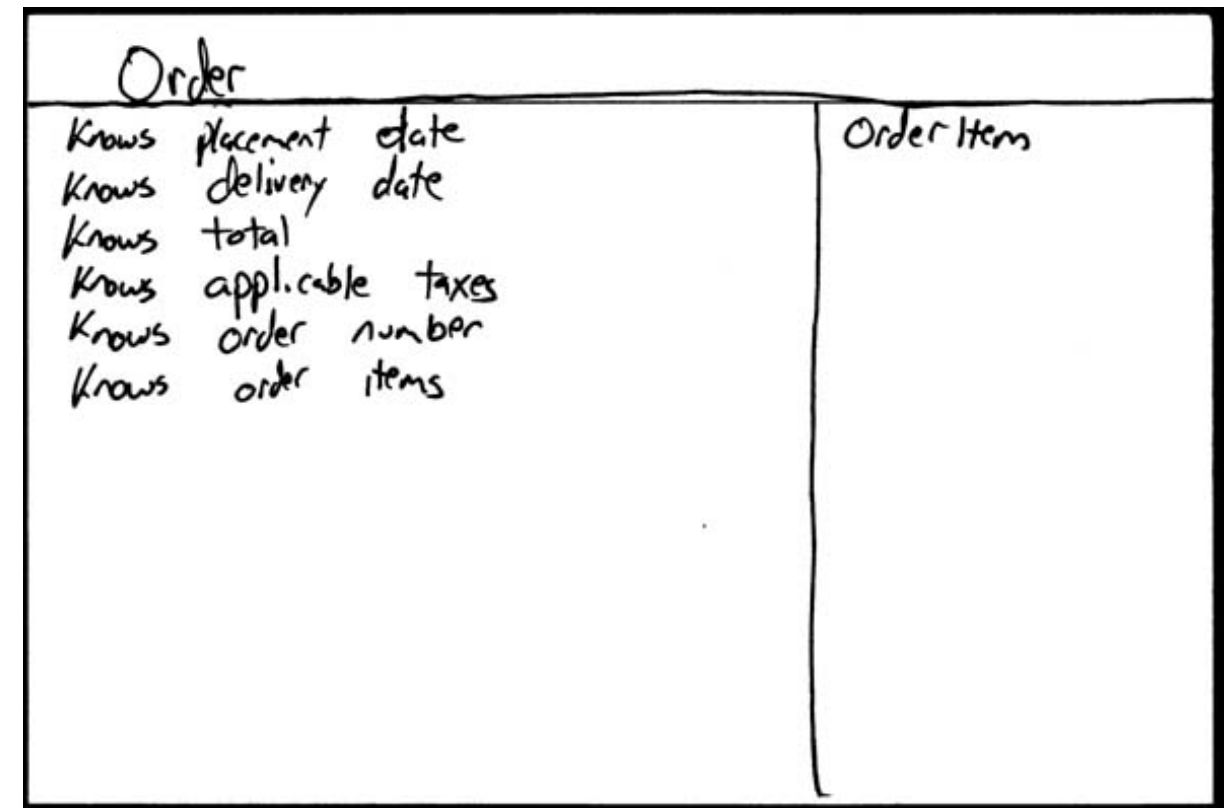 Order
Knows placement date
Knows delivery date
Knows total
Knows applicable taxes
Knows order number
Knows order items
Order Item